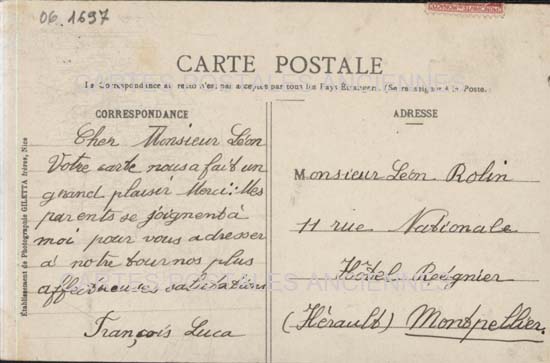 06.1697
CARTE POSTALE
CARTES POSTALES ANCIENNES
La Correspondance au recto n'est pas acceptée par tous les Pays Étrangers. (Se renseigner à la Poste.
CORRESPONDANCE
Cher Monsieur Léon
Votre carte nous a fait un
grand plaisir Merci: Mes
parents se joignent à
moi pour vous adresser
à notre tour nos plus
affectueuses salutations
François Luca
ADRESSE
Monsieur Léon Rolin
11 rue Nationale
Hôtel Régnier
(Hérault) Montpellier.
CARTES POSTALES ANCIENNES
Établissement de Photographie GILETTA frères, Nice